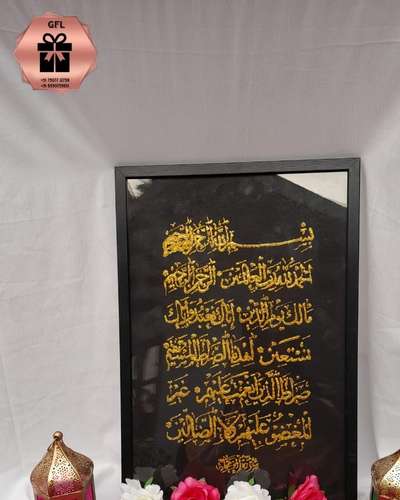 GFL
بسم الله الرحمن الرحيم
الحمد لله رب العالمين الرحمن الرحيم
مالك يوم الدين إياك نعبد وإياك
نستعين اهدنا الصراط المستقيم
صراط الذين أنعمت عليهم غير
المغضوب عليهم ولا الضالين